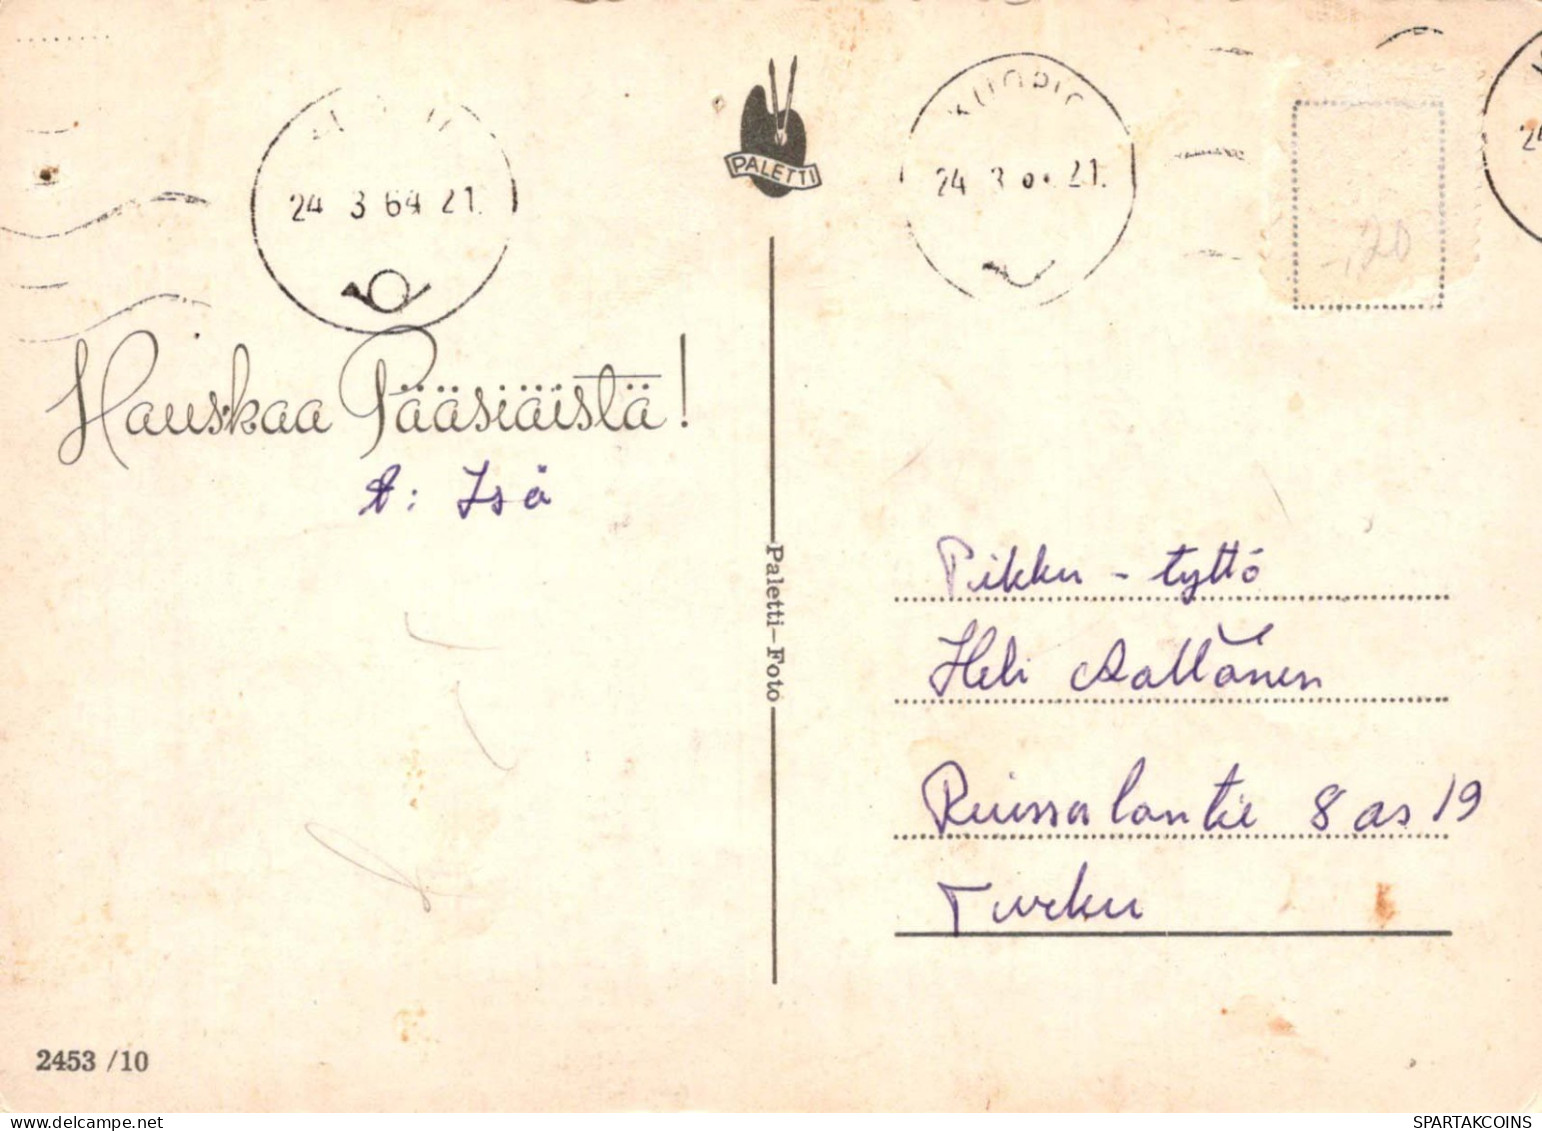 24 3 64 21.
PALETTI
KUOPIO
24 3 21.
24
-,20
Hauskaa Pääsiäistä!
t: Isä
Paletti-Foto
Pikku - tyttö
Heli Aaltonen
Ruissalontie 8 as 19
Turku
2453 /10
SPARTAKCOINS